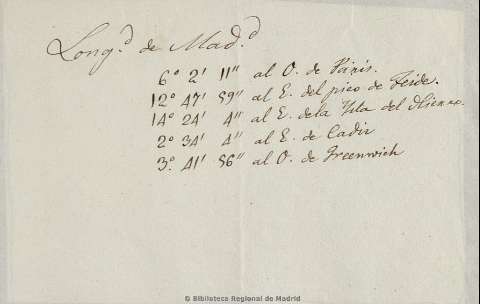 Long.d de Mad.d
6° 2' 11" al O. de Paris.
12° 47' 59" al E. del pico de Teide.
14° 24' 4" al E. de la Ysla del Hierro.
2° 34' 4" al E. de Cadiz
3° 41' 56" al O. de Greenwich
© Biblioteca Regional de Madrid